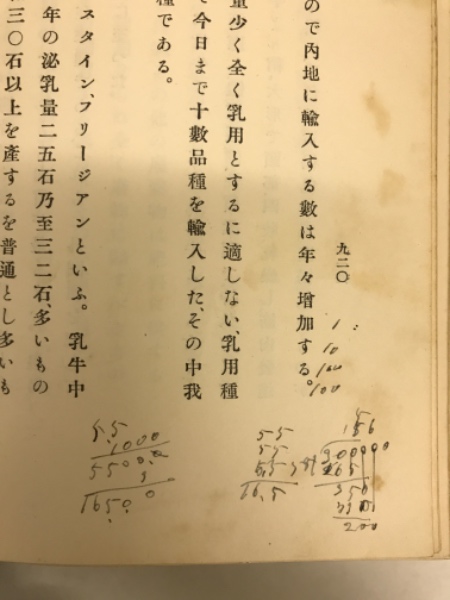 九二〇
ので內地に輸入する數は年々增加する。
量少く全く乳用とするに適しない、乳用種
て今日まで十數品種を輸入した、その中我
種である。
スタイン、フリージアンといふ。 乳牛中
年の泌乳量二五石乃至三二石、多いもの
三〇石以上を產するを普通とし多いも
1
10
100
100
5.5
1000
5500.0
3
16500
55
55
55
16.5
3000000
165
350
330
200